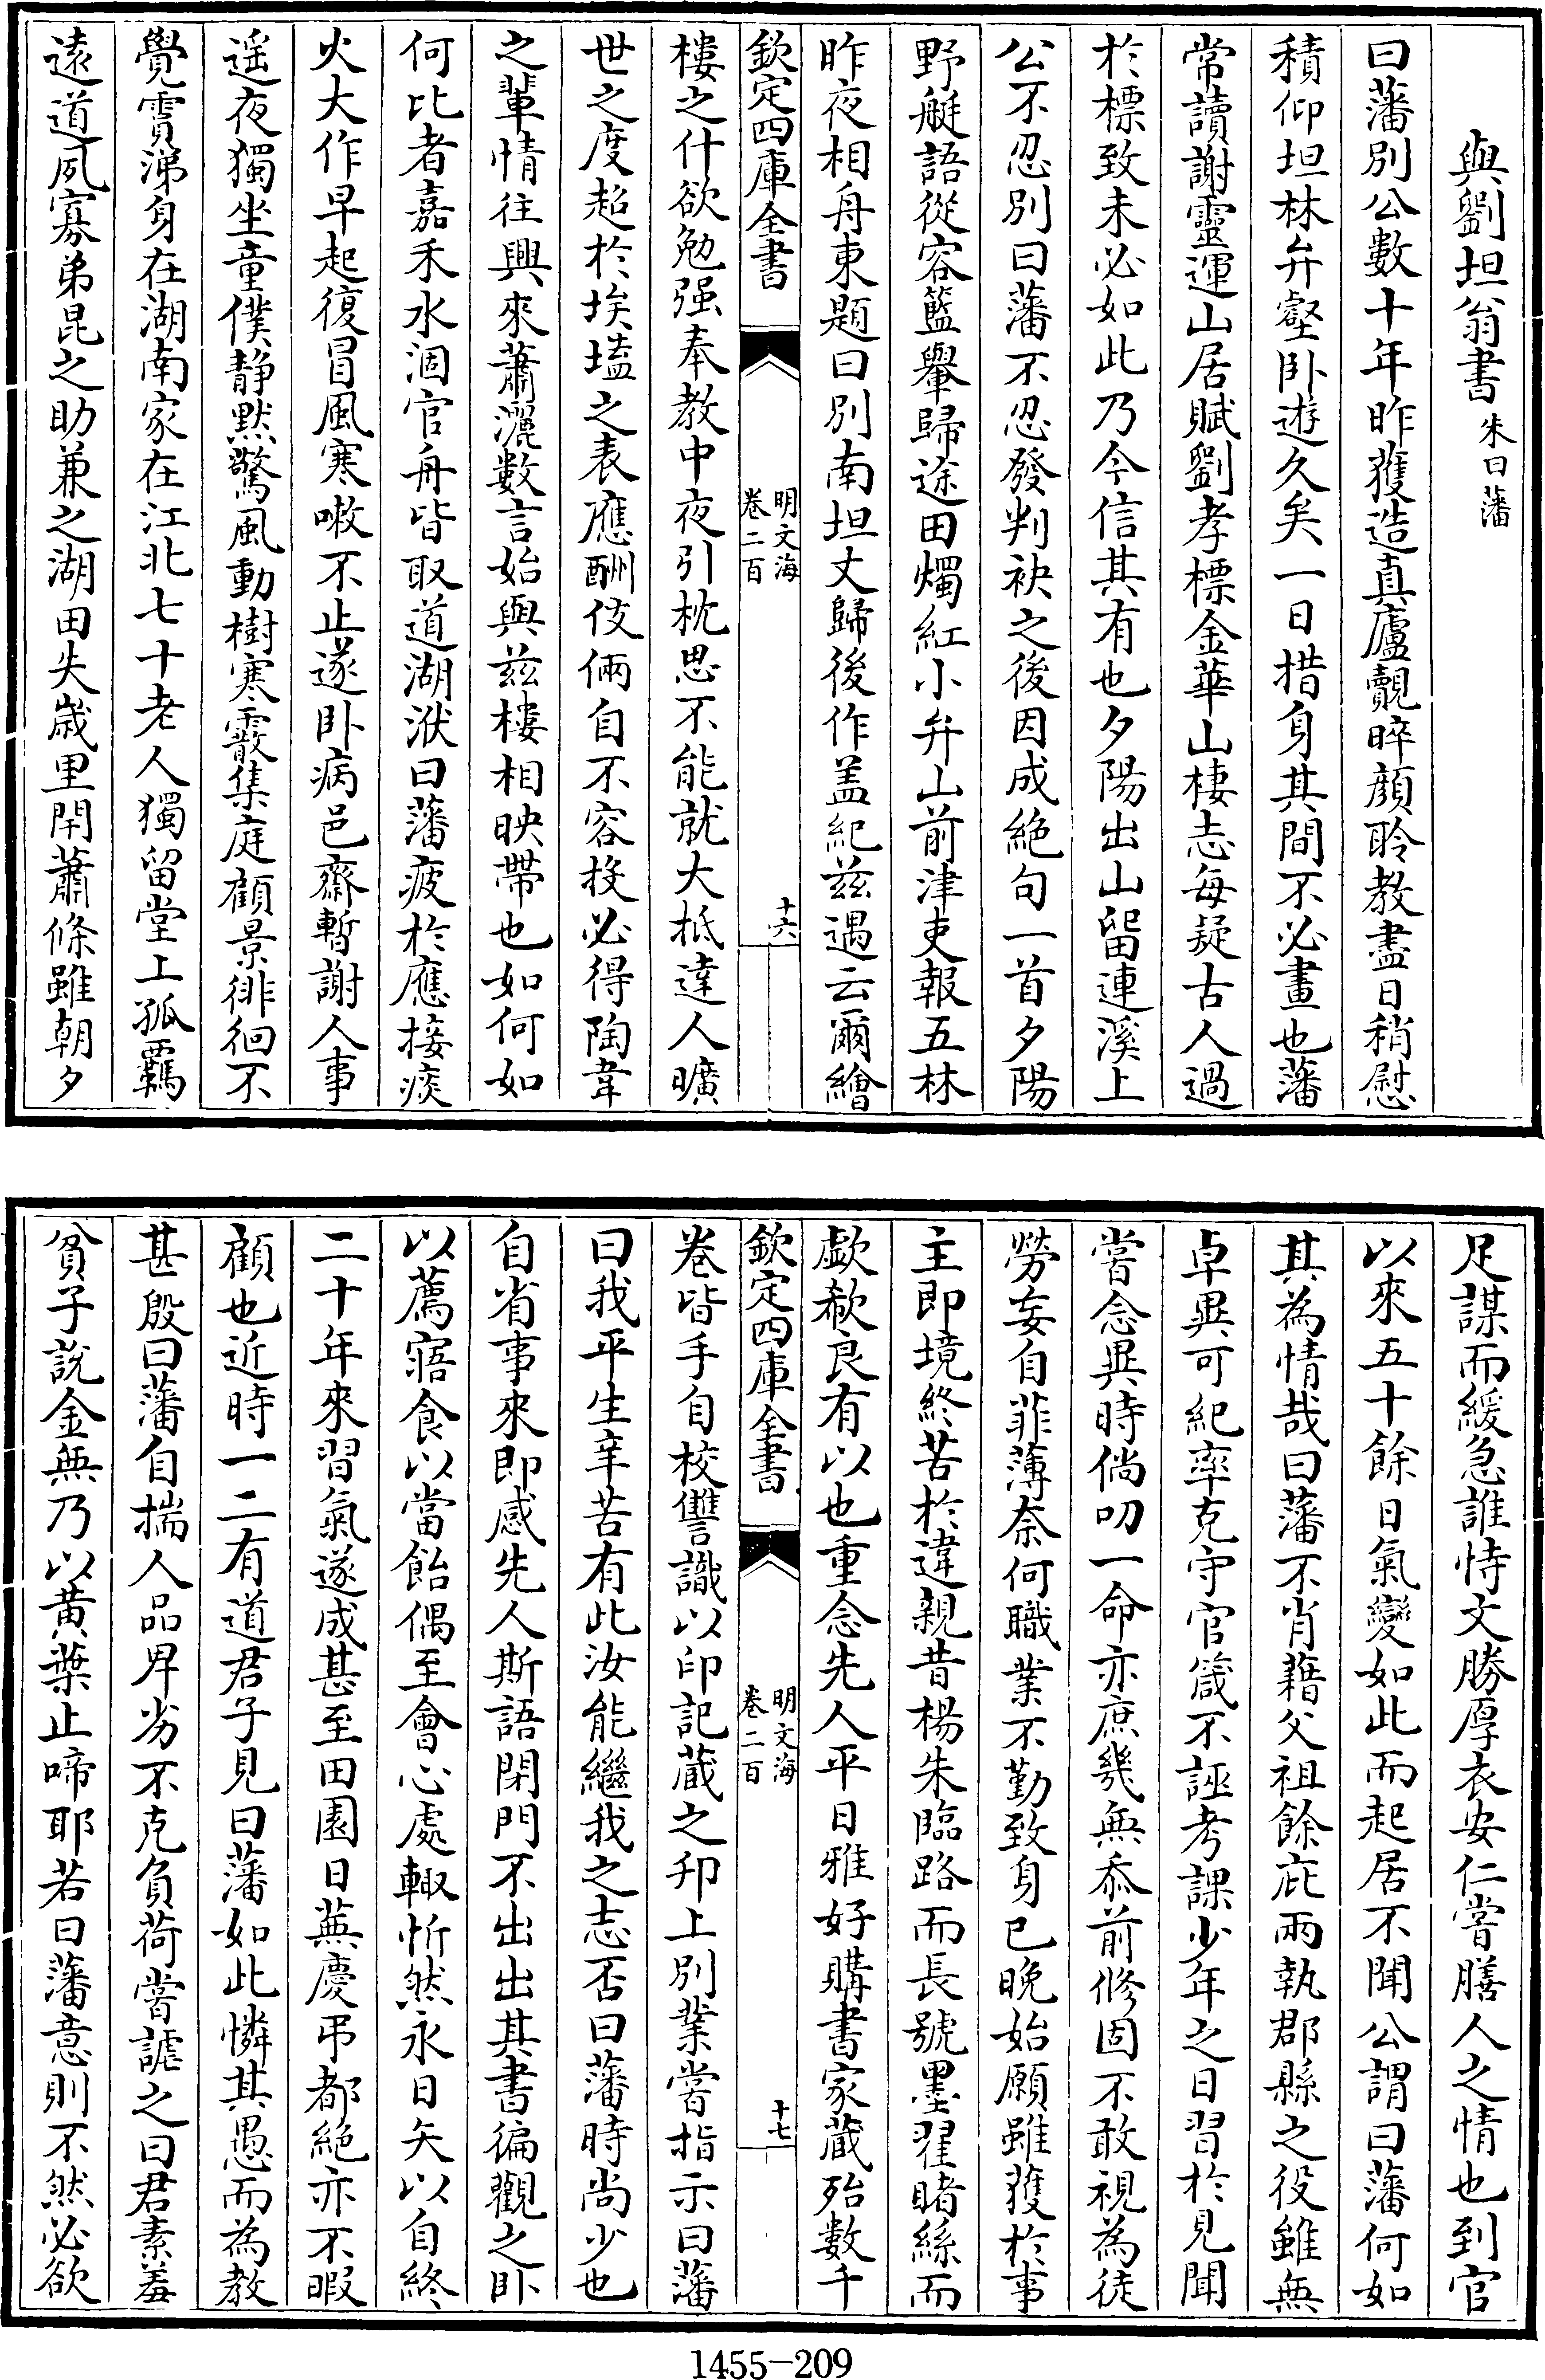 與劉坦翁書朱曰藩
曰藩別公數十年昨獲造真廬覿晬顔聆教盡日稍慰
積仰坦林弁壑卧遊久矣一日措身其間不必畫也藩
常讀謝靈運山居賦劉孝標金華山棲志每疑古人過
於標致未必如此乃今信其有也夕陽出山留連溪上
公不忍別曰藩不忍發判袂之後因成絶句一首夕陽
野艇語從容籃轝歸途田燭紅小弁山前津吏報五林
昨夜相舟東題曰別南坦丈歸後作盖紀兹遇云爾繪
欽定四庫全書
明文海
卷二百
十六
樓之什欲勉强奉教中夜引枕思不能就大抵達人曠
世之度超於埃壒之表應酬伎倆自不容投必得陶韋
之輩情往興來蕭灑數言始與兹樓相映帶也如何如
何比者嘉禾水涸官舟皆取道湖洑曰藩疲於應接痰
火大作早起復冒風寒嗽不止遂卧病邑齋暫謝人事
遥夜獨坐童僕靜默驚風動樹寒霰集庭顧景徘徊不
覺霣涕身在湖南家在江北七十老人獨留堂上孤羈
逺道夙寡弟昆之助兼之湖田失歲里閈蕭條雖朝夕
足謀而緩急誰恃文勝厚衣安仁嘗膳人之情也到官
以來五十餘日氣變如此而起居不聞公謂曰藩何如
其為情哉曰藩不肖藉父祖餘庇兩執郡縣之役雖無
卓異可紀率克守官箴不誣考課少年之日習於見聞
嘗念異時倘叨一命亦庶幾無忝前修固不敢視為徒
勞妄自菲薄奈何職業不勤致身已晚始願雖獲於事
主即境終苦於違親昔楊朱臨路而長號墨翟睹絲而
歔欷良有以也重念先人平日雅好購書家藏殆數千
欽定四庫全書
明文海
卷二百
十七
巻皆手自校讐識以印記藏之邜上別業嘗指示曰藩
曰我平生辛苦有此汝能繼我之志否曰藩時尚少也
自省事來即感先人斯語閉門不出出其書徧觀之卧
以薦寤食以當飴偶至會心處輙忻然永日矢以自終
二十年來習氣遂成甚至田園日蕪慶弔都絶亦不暇
顧也近時一二有道君子見曰藩如此憐其愚而為教
甚殷曰藩自揣人品卑劣不克負荷嘗謔之曰君素羞
貧子說金無乃以黄葉止啼耶若曰藩意則不然必欲
1455-209